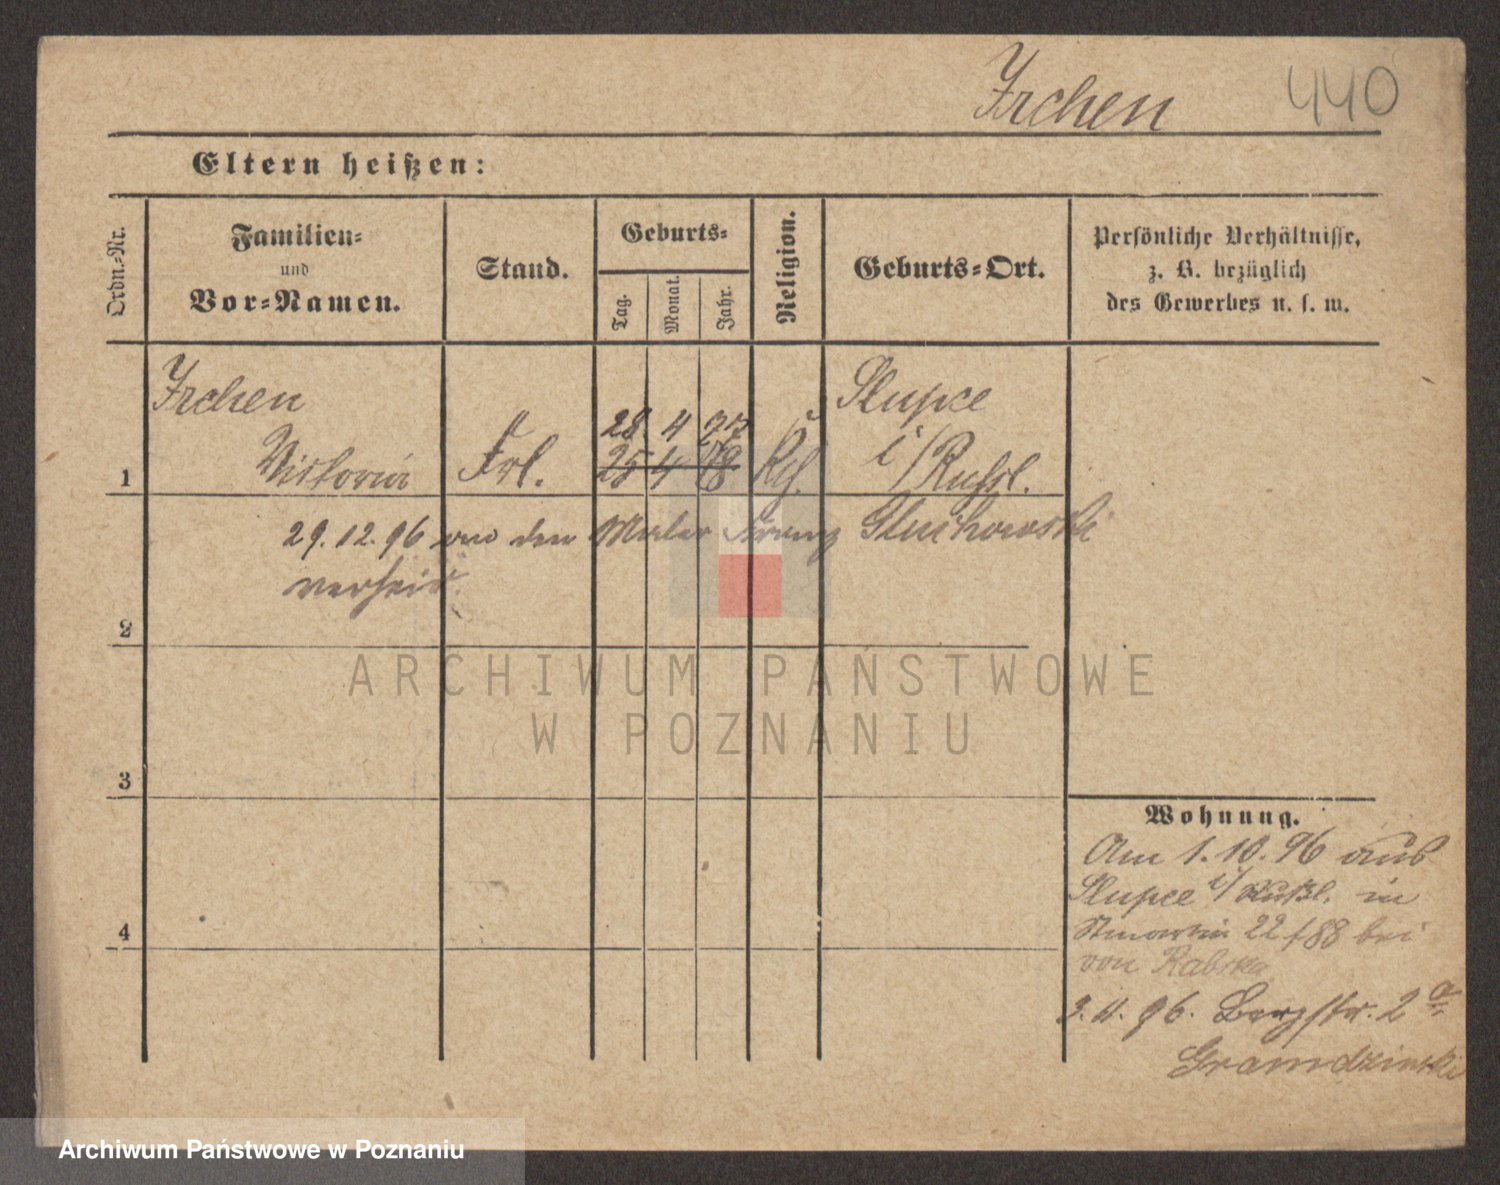 Irchen 440
Eltern heißen:
Ordn.-Nr.
Familien-
und
Vor-Namen.
Stand.
Geburts-
Tag.
Monat.
Jahr.
Religion.
Geburts-Ort.
Persönliche Verhältnisse,
z. B. bezüglich
des Gewerbes u. s. w.
Irchen
Viktoria
Frl.
28 4 77
25 4 78
Slupce
i/Rußl.
1
29.12.96 an den Maler Franz Gluchowski
verheir.
2
3
4
Wohnung.
Am 1.10.96 aus
Slupce i/Rußl. in
Stmartin 22 bei
von
3.11.96. Bergstr. 2 a
Grandzinski
ARCHIWUM PAŃSTWOWE
W POZNANIU
Archiwum Państwowe w Poznaniu